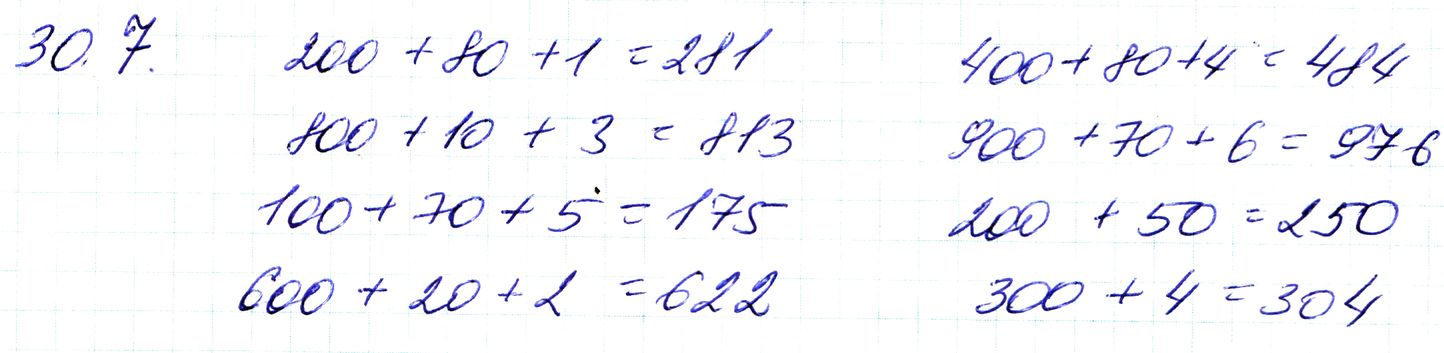 30.7. 200 + 80 + 1 = 281 400 + 80 + 4 = 484
800 + 10 + 3 = 813 900 + 70 + 6 = 976
100 + 70 + 5 = 175 200 + 50 = 250
600 + 20 + 2 = 622 300 + 4 = 304